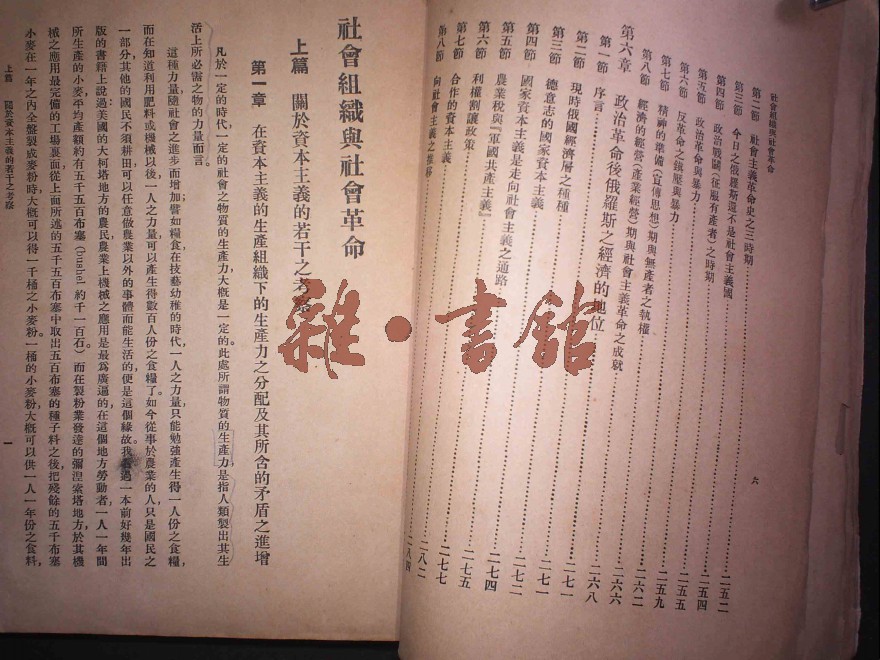 社會組織與社會革命
六
第二節　社會主義革命史之三時期……二五二
第三節　今日之俄羅斯還不是社會主義國……二五四
第四節　政治戰鬭(征服有產者)之時期
第五節　政治革命與暴力……二五五
第六節　反革命之鎮壓與暴力……二五九
第七節　精神的準備(宣傳思想)期與無產者之執權……二六二
第八節　經濟的經營(產業經營)期與社會主義革命之成就……二六六
第六章　政治革命後俄羅斯之經濟的地位……二六八
第一節　序言
第二節　現時俄國經濟層之種種……二七一
第三節　德意志的國家資本主義……二七一
第四節　國家資本主義是走向社會主義之通路……二七二
第五節　農業稅與『軍國共產主義』……二七四
第六節　利權割讓政策……二七五
第七節　合作的資本主義……二七七
第八節　向社會主義之推移……二八二
二八四
社會組織與社會革命
上篇　關於資本主義的若干之考察
第一章　在資本主義的生產組織下的生產力之分配及其所含的矛盾之進增
凡於一定的時代，一定的社會之物質的生產力，大概是一定的。此處所謂物質的生產力，是指人類製出其生
活上所必需之物的力量而言。
這種力量，隨社會之進步而增加；譬如糧食，在技藝幼稚的時代，一人之力量，只能勉強產生得一人份之食糧，
而在知道利用肥料或機械以後，一人之力量，可以產生得數百人份之食糧了。如今從事於農業的人，只是國民之
一部分，其他的國民，不須耕田，可以任意做農業以外的事體而能生活的，便是這個緣故。我看過一本前好幾年出
版的書籍上說過：美國的大柯塔地方的農民，農業上機械之應用，是最為廣逼的，在這個地方，勞動者一人一年間
所生產的小麥，平均產額約有五千五百布塞(Bushel 約千一百石)而在製粉業發達的彌湼索塔地方，於其機
械之應用最完備的工場裏面，從上面所述的五千五百布塞中，取出五百布塞的種子料之後，把殘餘的五千布塞
小麥，在一年之內全盤製成麥粉時，大概可以得一千桶之小麥粉。一桶的小麥粉，大概可以供一人一年份之食料，
上篇　關於資本主義的若干之考察
一
雜·書館